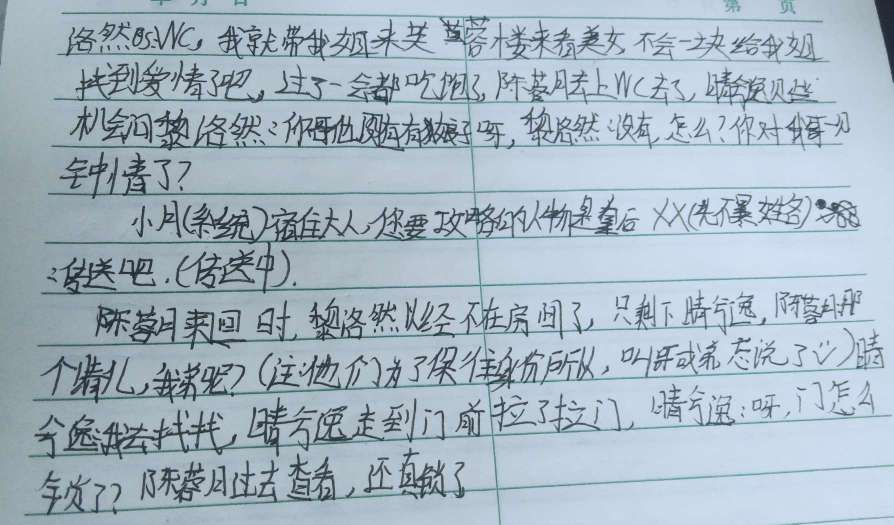 年 月 日 第 页
洛然BS:WC，我就带我姐来芙蓉楼来看美女，不会一块给我姐
找到爱情了吧，过了一会都吃饱了，陈蓉月去上WC去了，晴兮逸见些
机会问黎洛然：你哥他有呀，黎洛然：没有，怎么？你对我哥一见
钟情了？
小月(系统)宿住大人，您要攻略的人物是皇后XX(先不暴姓名)
：传送吧.(传送中).
陈蓉月来回时，黎洛然以经不在房间了，只剩下晴兮逸，陈蓉月：那
个晴儿，我弟呢？(注：他们为了保住身份所以，叫哥或弟态说了)晴
兮逸：我去找找，晴兮逸走到门前拉了拉门，晴兮逸：呀，门怎么
锁了？陈蓉月过去查看，还真锁了